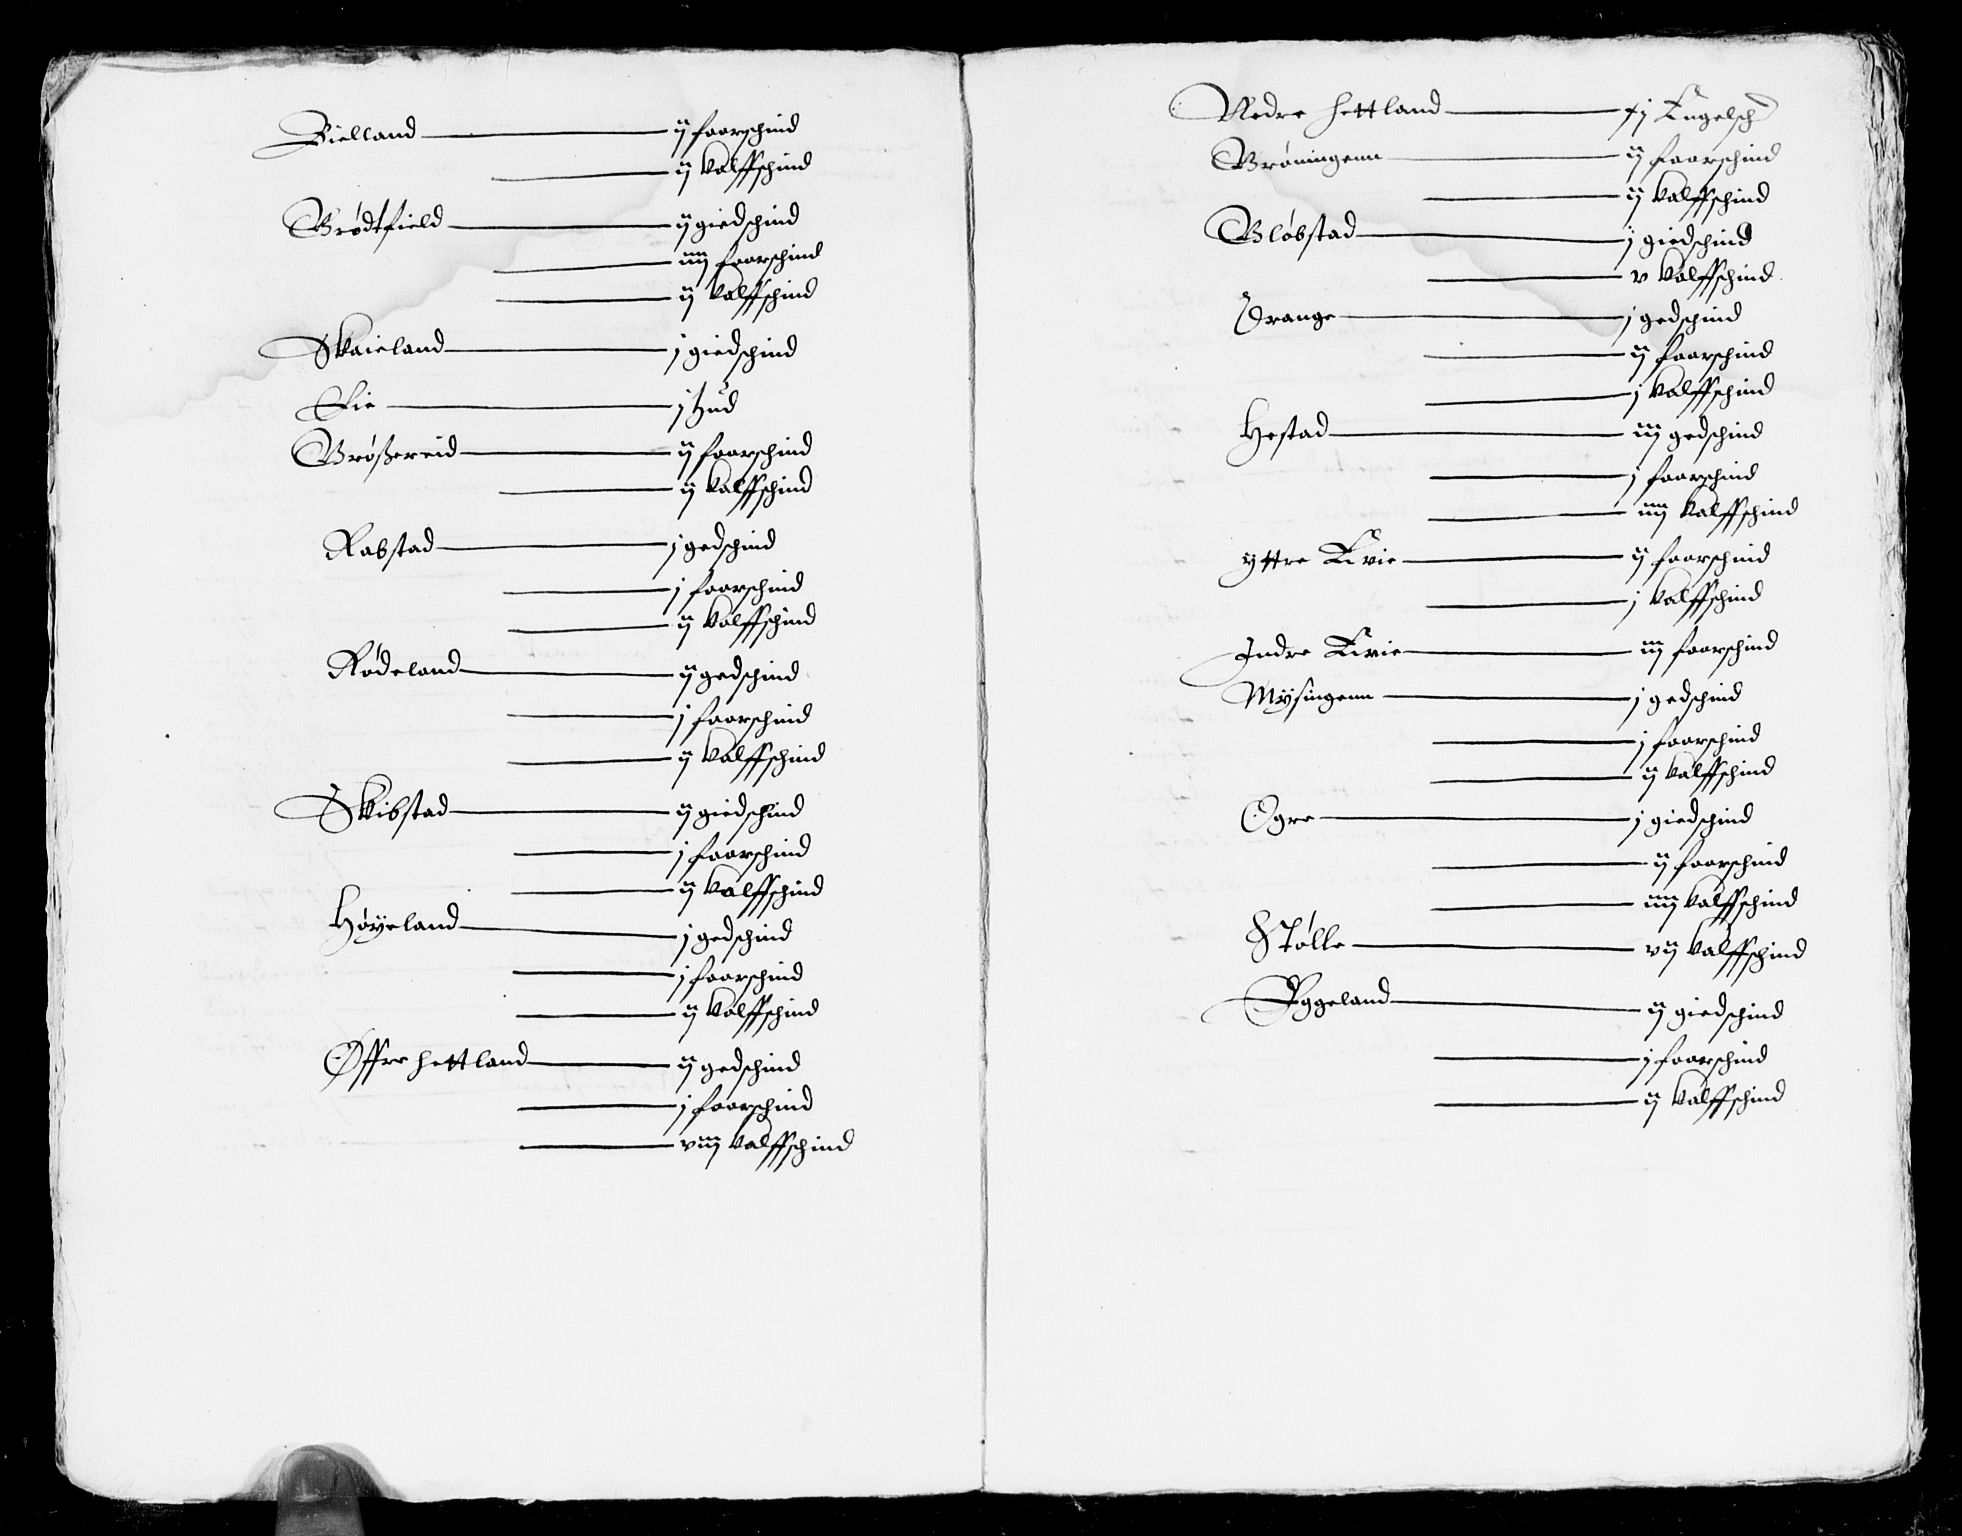 Bielland ——— ij faarschind
——— ij kalffschind
Brødtfield ——— ij giedschind
——— iiij faarschind
——— ij kalffschind
Skaieland ——— j giedschind
Lie ——— j hud
Brøßereid ——— ij faarschind
——— ij kalffschind
Rabstad ——— j gedschind
——— j faarschind
——— ij kalffschind
Rødeland ——— ij gedschind
——— j faarschind
——— ij kalffschind
Skibstad ——— ij giedschind
——— j faarschind
——— ij kalffschind
Høyeland ——— j gedschind
——— j faarschind
——— ij kalffschind
Øffre hettland ——— ij gedschind
——— j faarschind
——— viij kalffschind
Nedre hettland ——— Engelsch
Brøningenn ——— ij faarschind
——— ij kalffschind
Bløbstad ——— j giedschind
——— v kalffschind
Drange ——— j gedschind
——— ij faarschind
——— j kalffschind
Hestad ——— iij gedschind
——— j faarschind
——— iiij kalffschind
yttre Eivie ——— ij faarschind
——— j kalffschind
Indre Eivie ——— iij faarschind
Mysingenn ——— j gedschind
——— j faarschind
——— ij kalffschind
Ogre ——— j giedschind
——— ij faarschind
——— iiij kalffschind
Stølle ——— vij kalffschind
Eggeland ——— ij giedschind
——— j faarschind
——— ij kalffschind